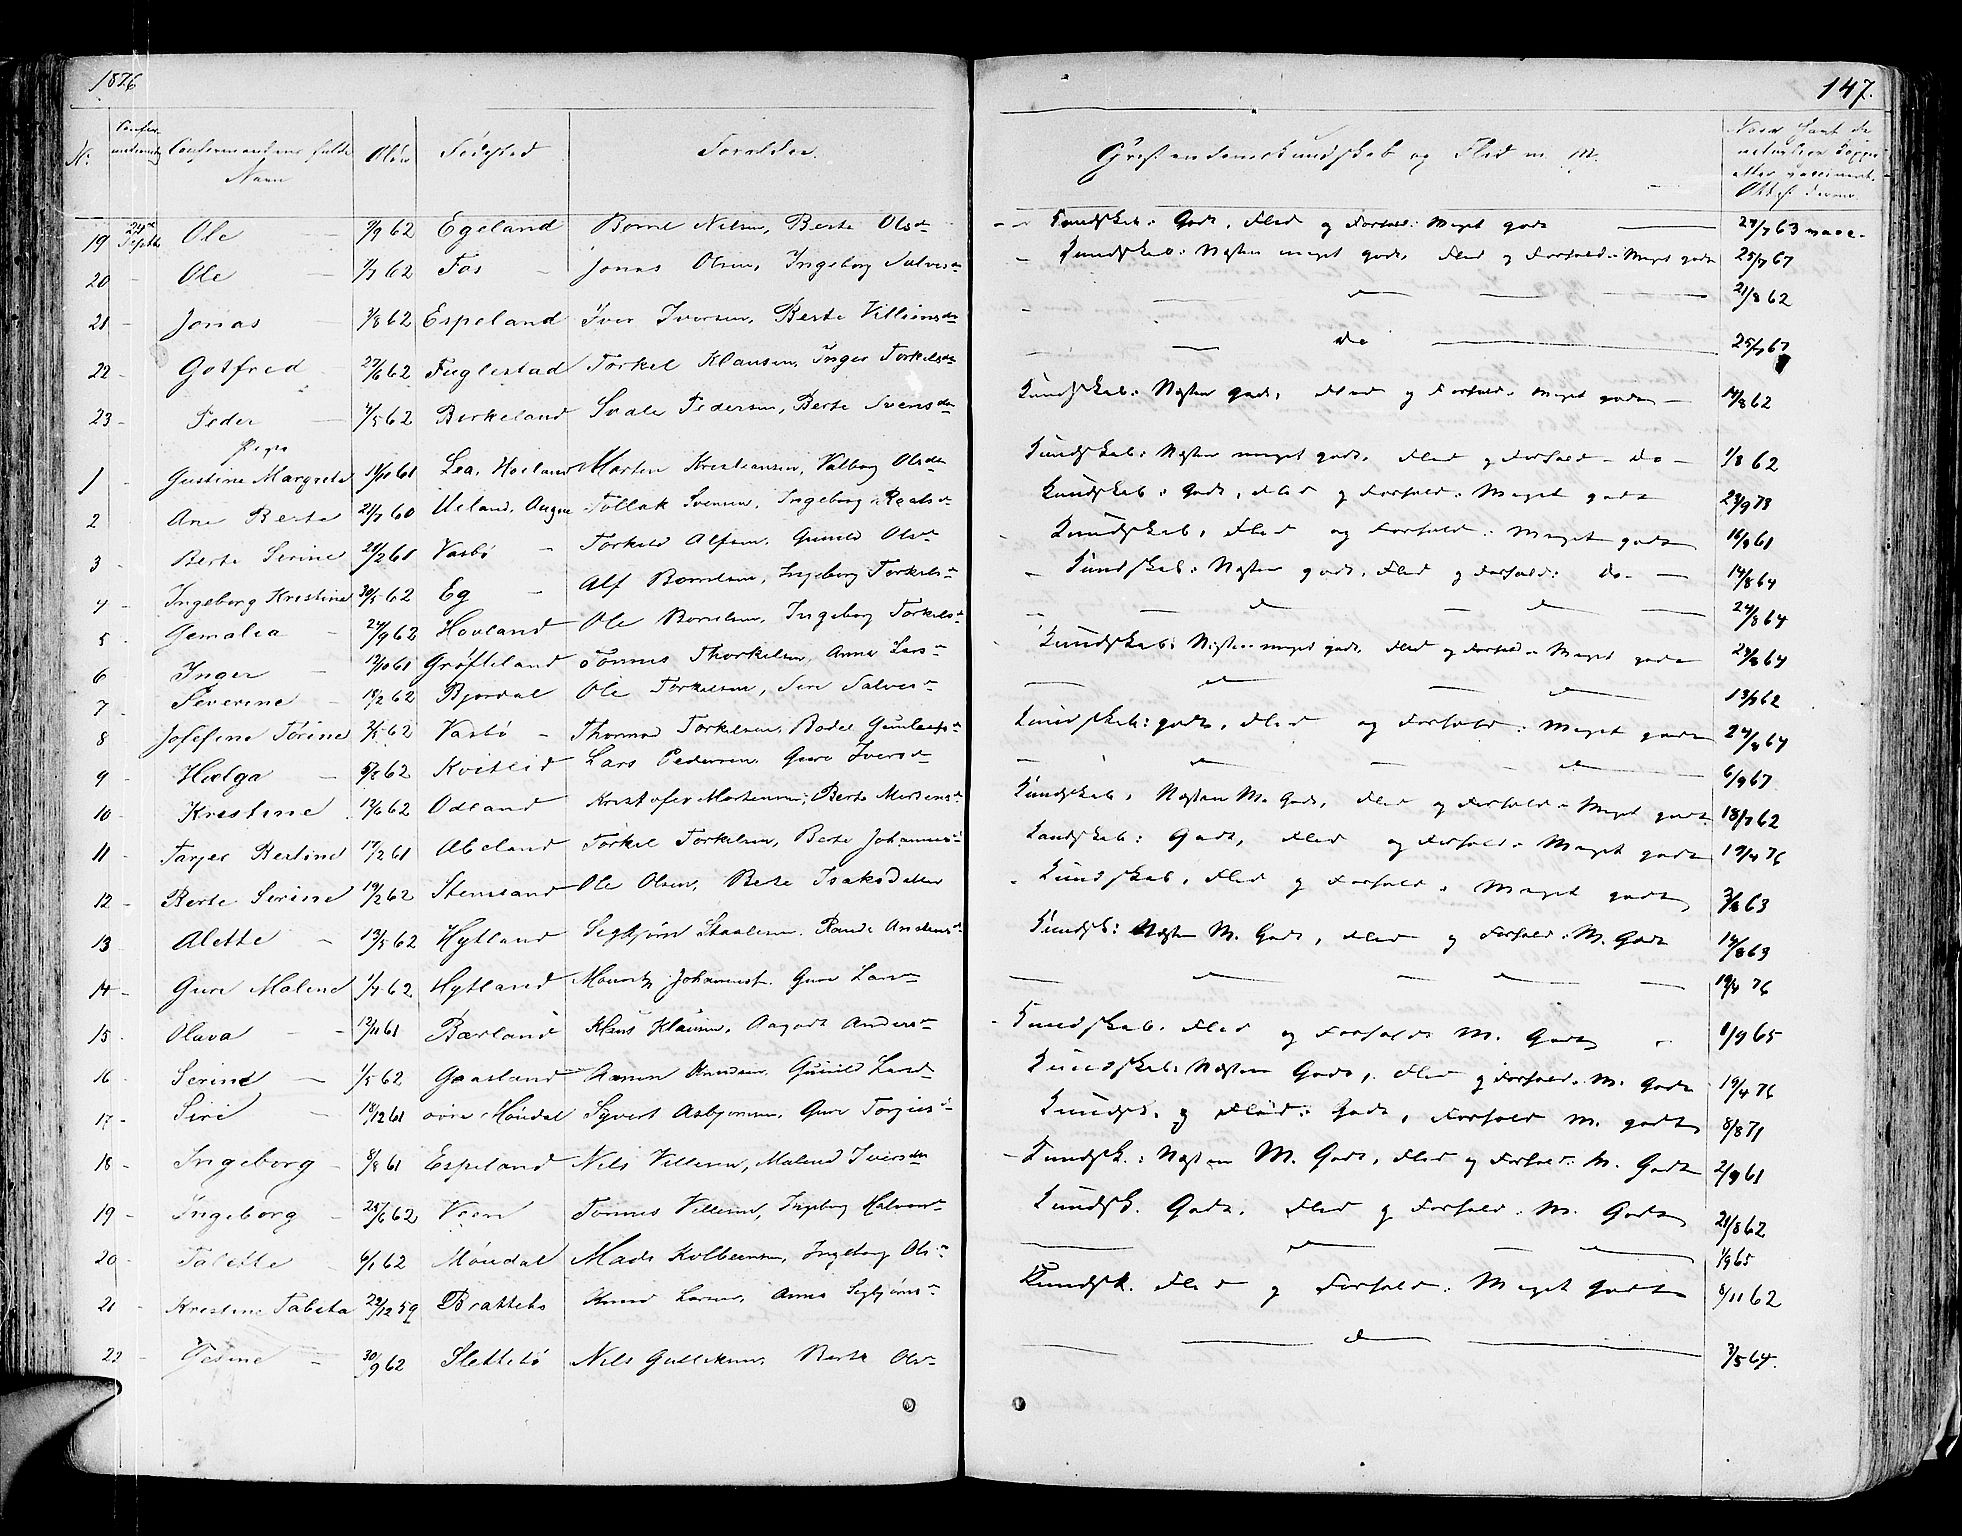 1876
147.
N: Confirmandens fulde Navn Alder Fødested Foræld​re. Christendomskundskab og Flid m. M.
19 Ole 7/9 62 Egeland Bornel Nilsen, Berte Olsdr Kundskab: Godt, Flid og Forhold: Meget godt 24/7 63 vacc.
20 Ole 1/7 62 Fos Jonas Olsen, Ingeborg Salvesdr Kundskab: Næsten meget godt, Flid og Forhold: Meget godt 25/7 67
21 Jonas 7/8 62 Espeland Iver Iversen, Berte Villumsdr do 21/8 62
22 Gotfred 27/6 62 Fuglestad Torkel Klausen, Inger Torkelsdr do 25/7 67
23 Peder 7/5 62 Birkeland Svale Pedersen, Berte Svensdr Kundskab: Næsten godt, Flid og Forhold: Meget godt 14/8 62
Piger
1 Gustine Margrete 11/10 61 Lea, Hoeland Morten Kristiansen, Valborg Olsdr Kundskab: Næsten meget godt, Flid og Forhold do 1/8 62
2 Ane Berta 21/7 60 Ueland, Augne Tollak Svensen, Ingeborg Roalsdr Kundskab: Godt, Flid og Forhold: Meget godt 23/9 78
3 Berte Serine 21/2 61 Vasbø Torkild Alfsen, Gunild Olsdr Kundskab, Flid og Forhold: Meget godt 16/9 61
4 Ingeborg Kristine 30/5 62 Eg Alf Bornelsen, Ingeborg Torkelsdr Kundskab: Næsten godt, Flid og Forhold: do 14/8 64
5 Jemalia 24/9 62 Hovland Ole Bornelsen, Ingeborg Torkelsdr do do 24/8 64
6 Inger 12/10 61 Grøfteland Tønnes Thorkelsen, Anne Larsdr Kundskab: Næsten meget godt, Flid og Forhold: Meget godt 24/8 64
7 Severine 18/2 62 Bjordal Ole Torkelsen, Siri Salvesdr do do 13/9 62
8 Josefine Torine 2/5 62 Vasbø Thormod Torkelsen, Bodel Gunlaugsdr Kundskab: godt, Flid og Forhold: Meget godt 24/8 64
9 Helga 5/8 62 Kvitlid Lars Pedersen, Guro Iversdr do do 6/9 67
10 Kristine 12/6 62 Odland Kristofer Mortensen, Berte Mortensdr Kundskab: Næsten M. Godt, Flid og Forhold: Meget godt 18/7 62
11 Tarjer Bertine 17/2 61 Abeland Torkel Torkelsen, Berte Johannesdr Kundskab: Godt, Flid og Forhold: Meget godt 19/4 76
12 Berte Serine 19/2 62 Stemsand Ole Olsen, Berte Isaksdatter Kundskab, Flid og Forhold: Meget godt 3/8 63
13 Alette 13/5 62 Hytland Segbjørn Staalesen, Rande Andersdr Kundsk: Næsten M. Godt, Flid og Forhold: M. Godt 14/8 63
14 Guri Malene 1/4 62 Hytland Mouritz Johannesen, Guri Larsdr do do 19/4 76
15 Olava 12/11 61 Bærland Klaus Klausen, Aagot Andersdr Kundskab, Flid og Forhold: M. Godt 1/9 65
16 Serine 1/5 62 Gaasland Aanen Knudsen, Gunild Larsdr Kundskab: Næsten Godt, Flid og Forhold: M. Godt 19/4 76
17 Siri 18/12 61 øvre Mondal Syvert Asbjornsen, Guri Torgiesdr Kundsk. og Flid: Godt, Forhold M. godt 8/8 71
18 Ingeborg 8/8 61 Espeland Nils Villumsen, Malene Iversdr Kundsk.: Næsten M. Godt, Flid og Forhold: M. Godt 2/9 61
19 Ingeborg 28/6 62 Veen Tønnes Villumsen, Ingeborg Halvorsdr Kundsk. Godt, Flid og Forhold: M. Godt 21/8 62
20 Talette 6/1 62 Mondal Mads Kolbeinsen, Ingeborg Olsdr do do 1/9 65
21 Kristine Tabita 29/12 59 Brattebø Knud Larsen, Anna Segbjørnsdr Kundsk. Flid og Forhold: Meget Godt 8/11 62
22 Tesine 30/9 62 Slettebø Nils Gulliksen, Berte Olsdr do 3/5 64.